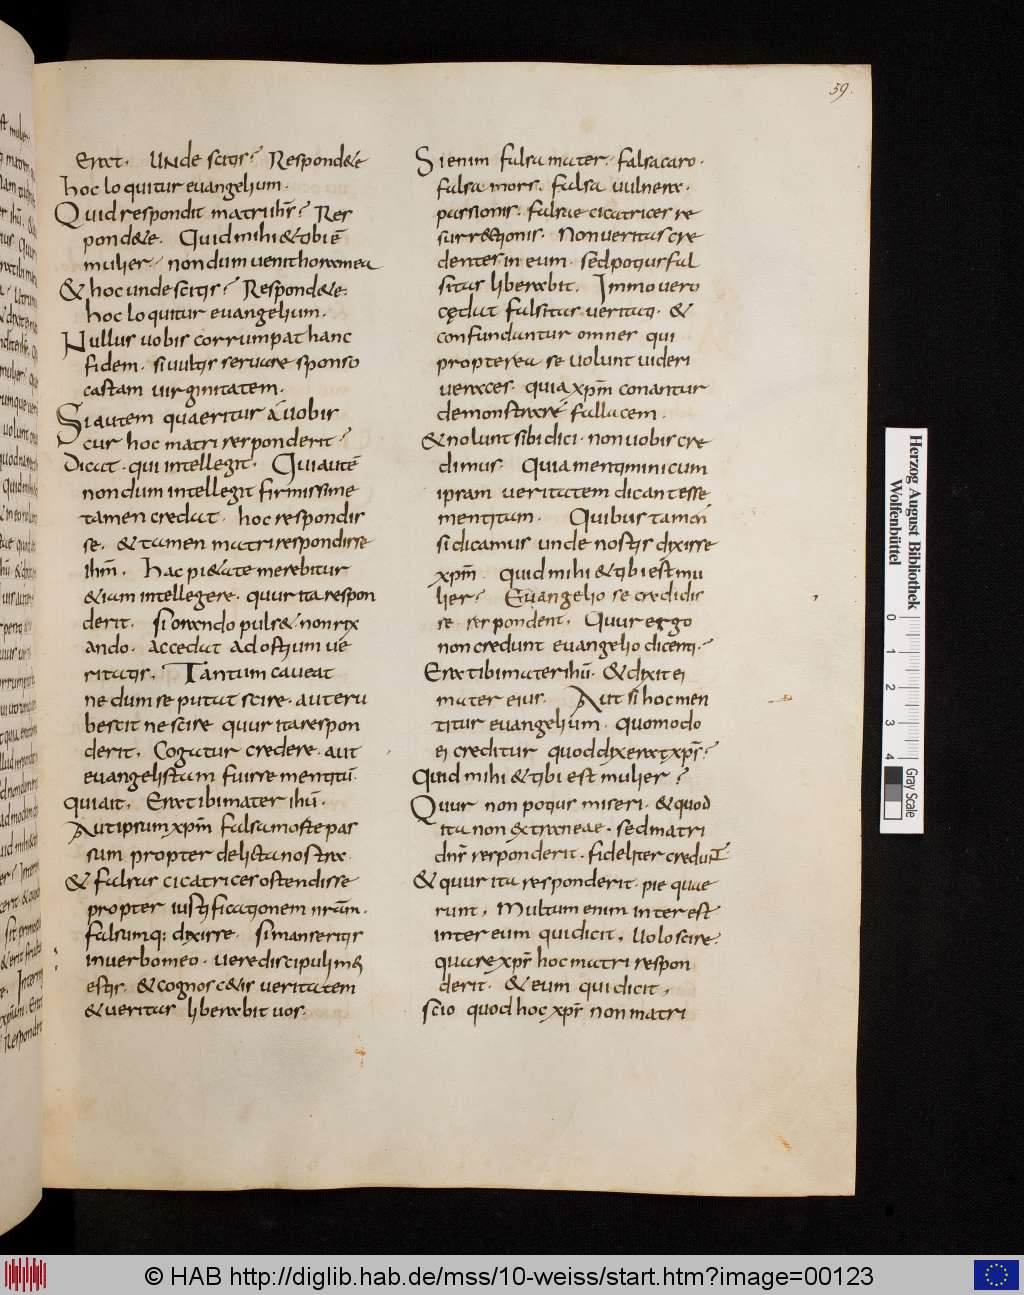 59.
Erat. Unde scitis? Respond&e
hoc loquitur euangelium.
Quid respondit matri ih̄s? Res
pond&e. Quid mihi & tibi ē
mulier. nondum uenit hora mea
& hoc unde scitis? Respond&e.
hoc loquitur euangelium.
Nullus uobis corrumpat hanc
fidem. si uultis seruare sponso
castam uirginitatem.
Si autem quaeritur a uobis
cur hoc matri responderit?
Dicat. qui intellegit. Qui autē
nondum intellegit firmissime
tamen credat. hoc respondis
se. & tamen matri respondisse
ihm̄. hac pi&ate merebitur
&iam intellegere. quur ita respon
derit. si orando puls&. non rix
ando. accedat ad ostium ue
ritatis. Tantum caueat
ne dum se putat scire. aut eru
bescit nescire quur ita respon
derit. Cogatur credere. aut
euangelistam fuisse mentitū.
qui ait. Erat ibi mater ihū.
Aut ipsum xpm̄ falsa morte pas
sum propter delicta nostra.
& falsas cicatrices ostendisse
propter iustificationem nrām.
falsumq; dixisse. si manseritis
in uerbo meo. uere discipuli mei
estis. & cognosc&is ueritatem
& ueritas liberabit uos.
Si enim falsa mater. falsa caro.
falsa mors. falsa uulnera.
passionis. falsae cicatrices re
surr&ionis. Non ueritas cre
dentes in eum. sed potius fal
sitas liberabit. Immo uero
cędat falsitas ueritati. &
confundantur omnes qui
propterea se uolunt uideri
ueraces. quia xpm̄ conantur
demonstrare fallacem.
& nolunt sibi dici. non uobis cre
dimus. Quia mentimini cum
ipsam ueritatem dicant esse
mentitam. Quibus tamen
si dicamus unde nostis dixisse
xpm̄. quid mihi & tibi est mu
lier? Euangelio se credidis
se respondent. Quur ergo
non credunt euangelio dicenti.?
Erat ibi mater ihū. & dixit ei
mater eius. Aut si hoc men
titur euangelium. quomodo
ei creditur quod dixerat xpr̄?
Quid mihi & tibi est mulier?
Quur non potius miseri. & quod
ita non extraneae. sed matri
dnr̄ responderit. fideliter credunt
& quur ita responderit. pie quae
runt. Multum enim interest
inter eum qui dicit. Uolo scire.
quare xpr̄ hoc matri respon
derit. & eum qui dicit.
scio quod hoc xpr̄ non matri
Herzog August Bibliothek
Wolfenbüttel
0 1 2 3 4
Gray Scale
© HAB http://diglib.hab.de/mss/10-weiss/start.htm?image=00123